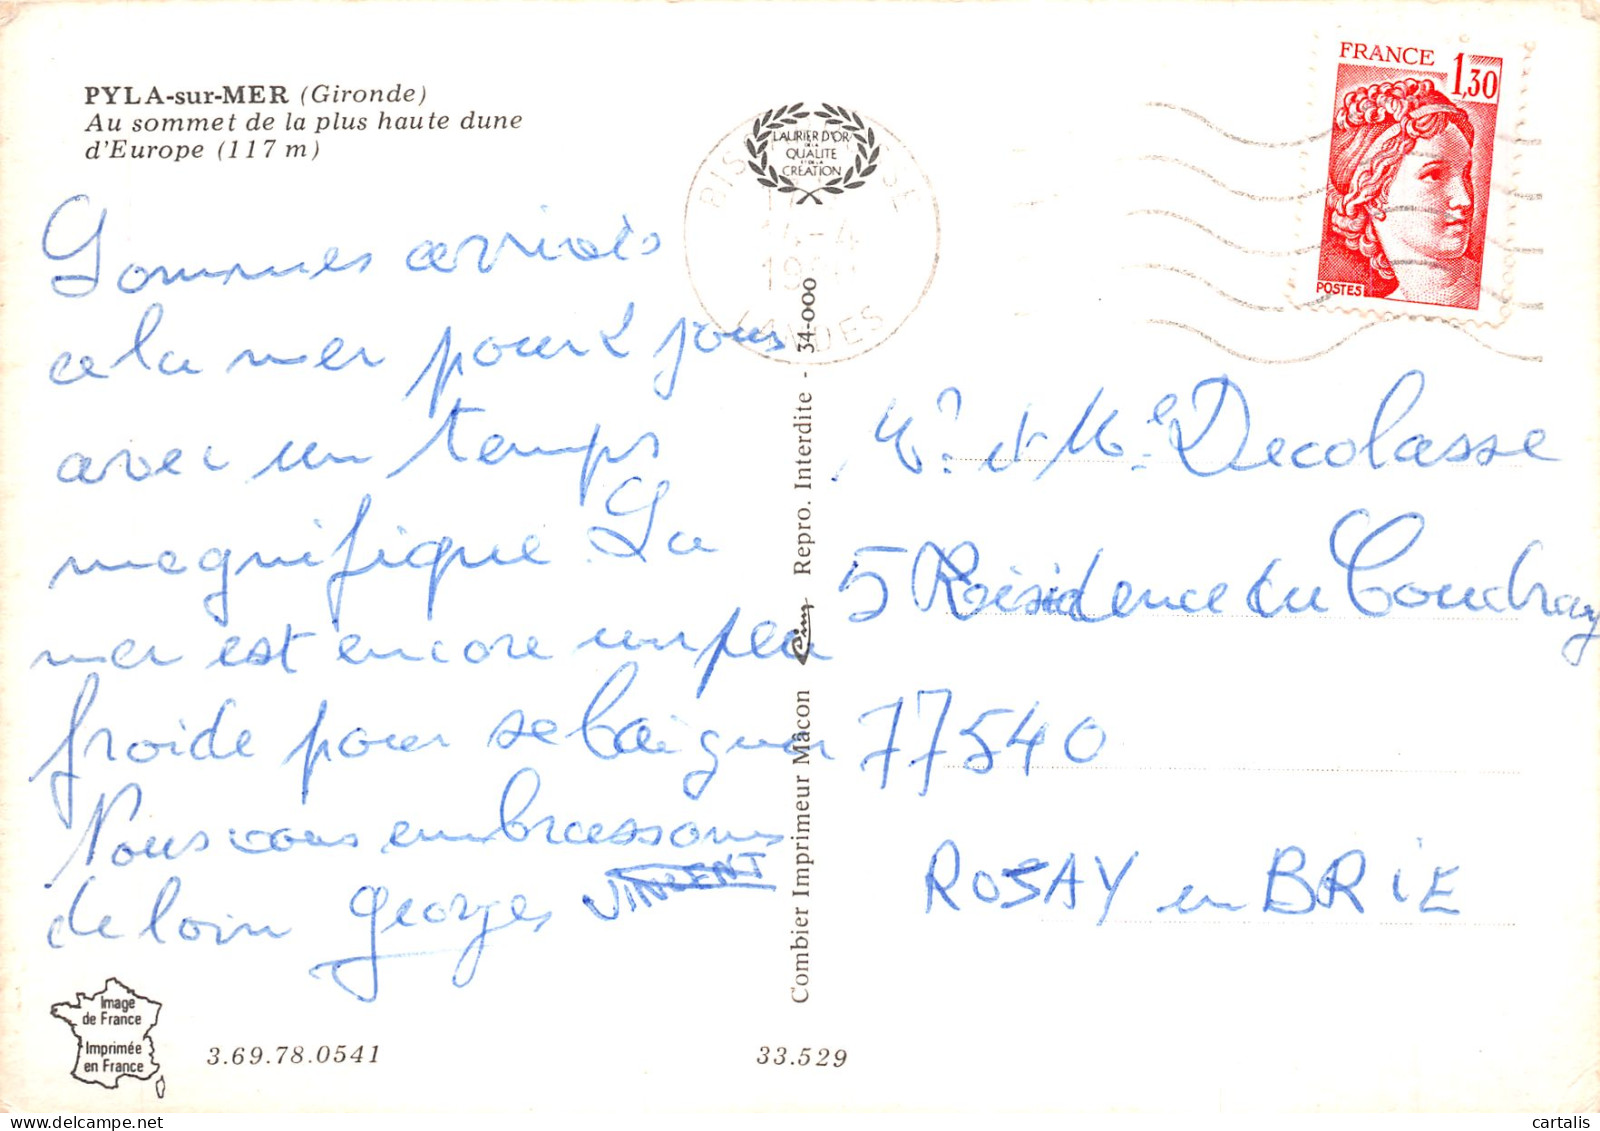 PYLA-sur-MER (Gironde)
Au sommet de la plus haute dune
d'Europe (117 m)
Sommes arrivés
a la mer pour 2 jours
avec un temps
magnifique. La
mer est encore un peu
froide pour se baigner
Nous vous embrassons
de loin Georges VINCENT
Image
de France
Imprimée
en France
3.69.78.0541
33.529
LAURIER D'OR
DE LA
QUALITE
ET DE LA
CREATION
14-4
LANDES
Combier Imprimeur Mâcon Cim Repro. Interdite - 34-000
FRANCE 1,30
POSTES
Mr et Me Decolasse
5 Résidence du Coudray
77540
ROSAY en BRIE
cartalis